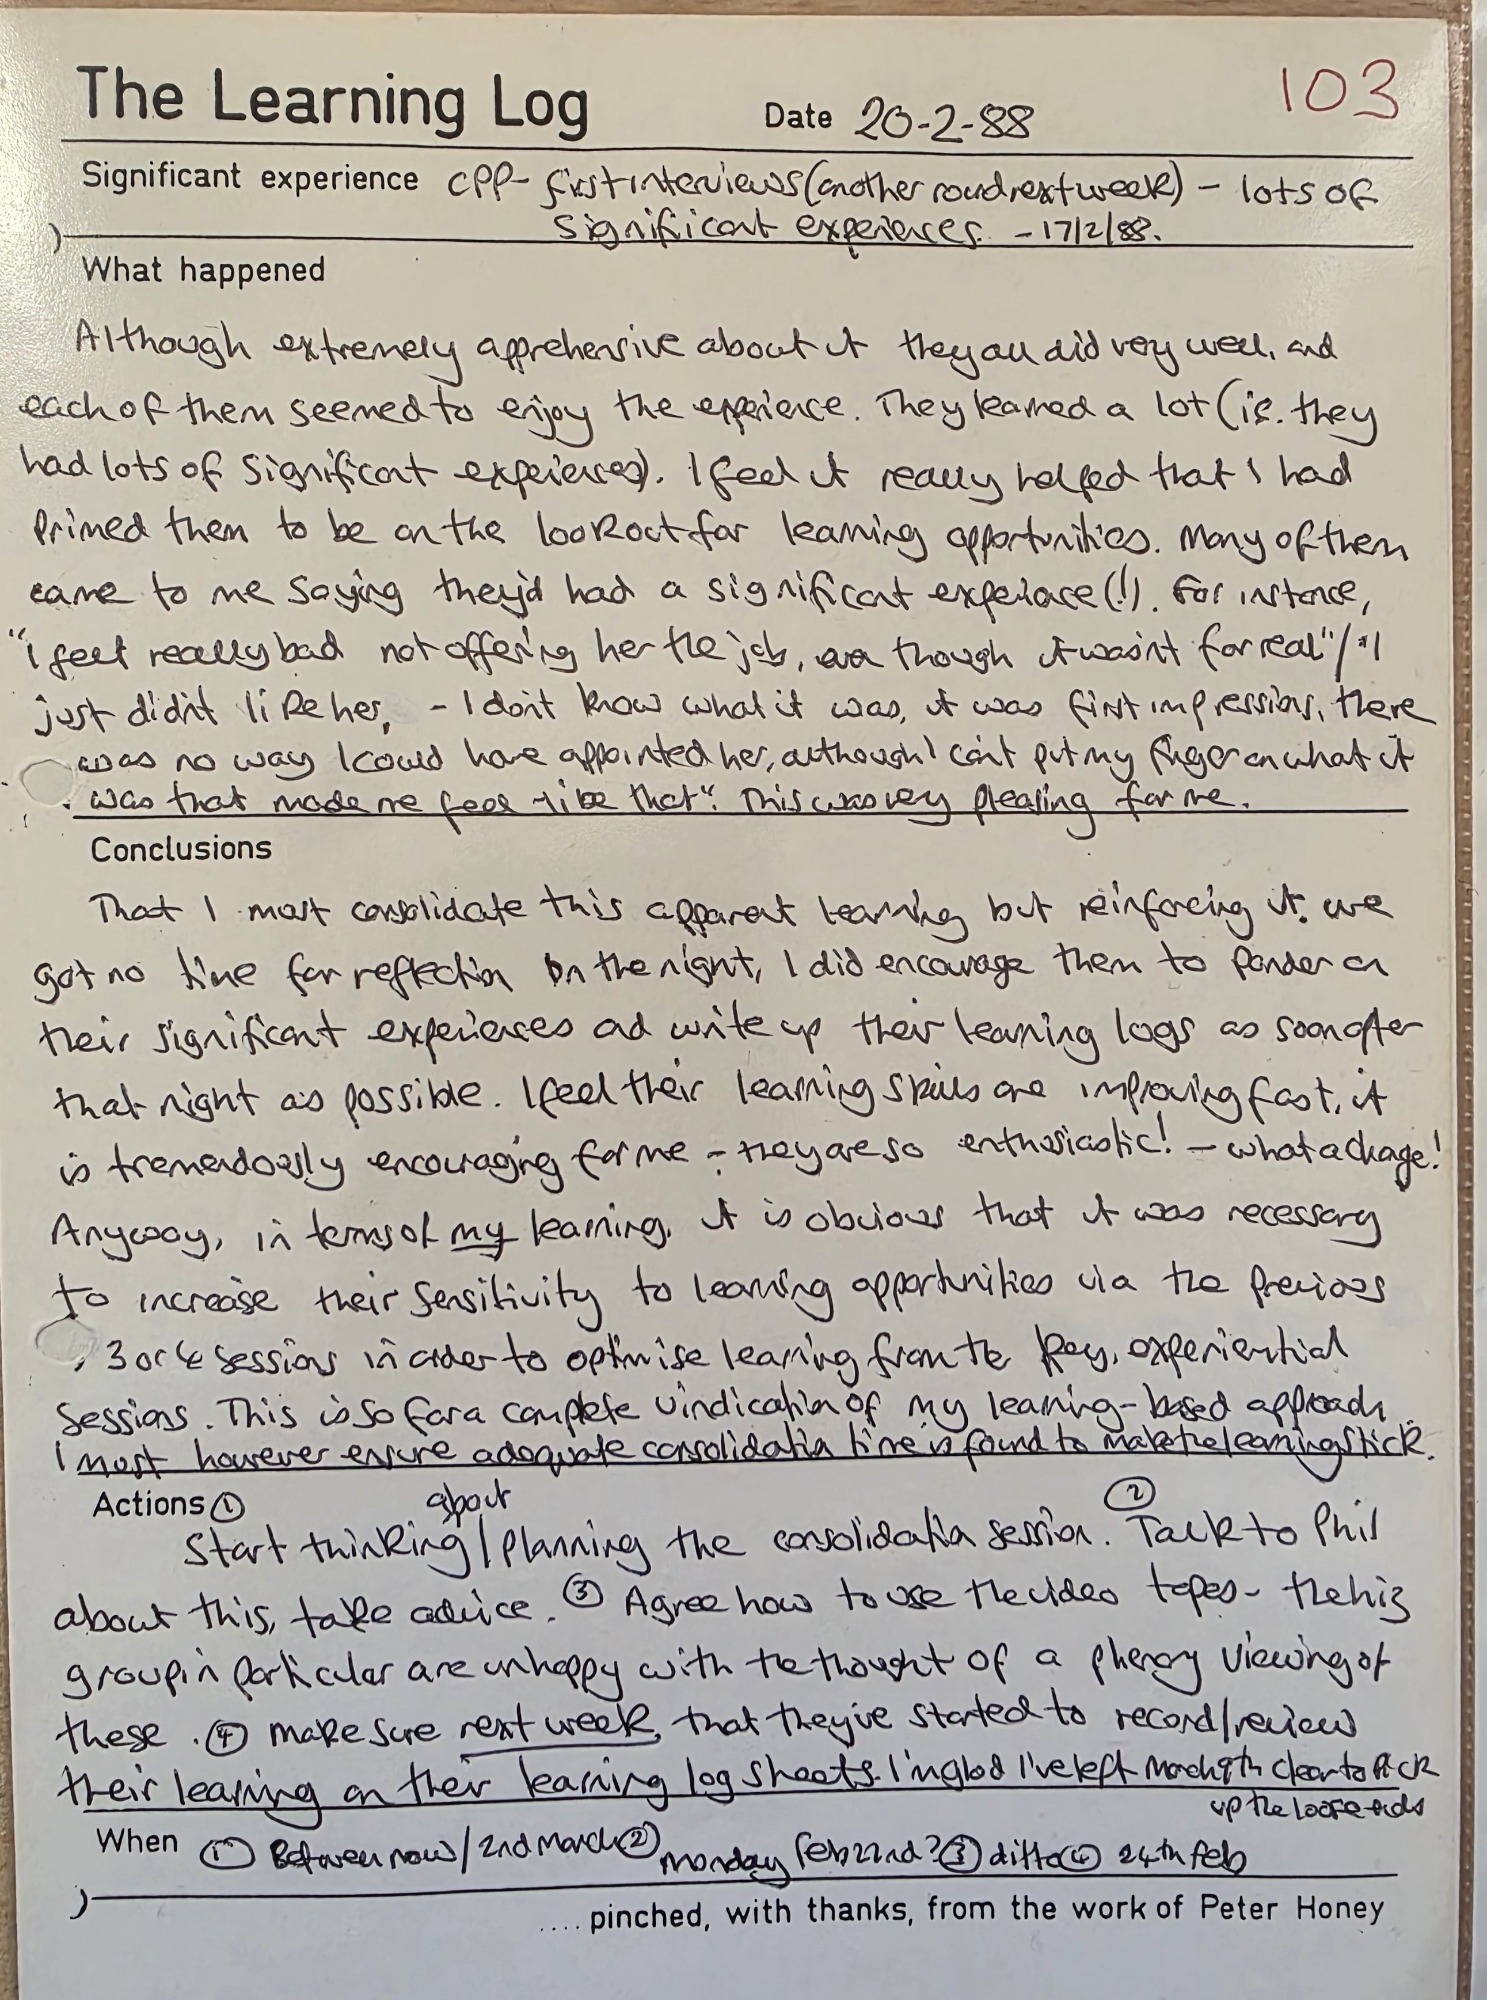 The Learning Log Date 20-2-88 103
Significant experience CPP- first interviews (another round next week) - lots of
significant experiences. - 17/2/88.
What happened
Although extremely apprehensive about it they all did very well, and
each of them seemed to enjoy the experience. They learned a lot (ie. they
had lots of significant experiences). I feel it really helped that I had
primed them to be on the lookout for learning opportunities. Many of them
came to me saying they'd had a significant experience (!). For instance,
"I feel really bad not offering her the job, even though it wasn't for real" / "I
just didn't like her, - I don't know what it was, it was first impressions, there
was no way I could have appointed her, although I can't put my finger on what it
was that made me feel like that". This was very pleasing for me.
Conclusions
That I must consolidate this apparent learning but reinforcing it. we
got no time for reflection on the night, I did encourage them to ponder on
their significant experiences and write up their learning logs as soon after
that night as possible. I feel their learning skills are improving fast, it
is tremendously encouraging for me - they are so enthusiastic! - what a change!
Anyway, in terms of my learning, it is obvious that it was necessary
to increase their sensitivity to learning opportunities via the previous
3 or 4 sessions in order to optimise learning from the key, experiential
sessions. This is so far a complete vindication of my learning-based approach.
I must however ensure adequate consolidation time is found to make the learning stick.
Actions ① about ②
Start thinking / planning the consolidation session. Talk to Phil
about this, take advice. ③ Agree how to use the video tapes - the
group in particular are unhappy with the thought of a plenary viewing of
these. ④ make sure next week, that they've started to record/review
their learning on their learning log sheets. I'm glad I've left March 9th clear to pick
up the loose ends
When ① Between now / 2nd March ② Monday Feb 22nd? ③ ditto ④ 24th Feb
.... pinched, with thanks, from the work of Peter Honey